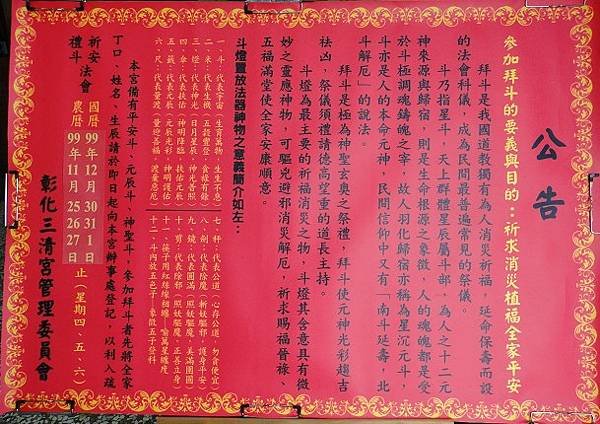 公告
參加拜斗的要義與目的：祈求消災植福全家平安
拜斗是我國道教獨有為人消災祈福，延命保壽而設
的法會科儀，成為民間最普遍常見的祭儀。
斗乃指星斗，天上群體星辰屬斗部，為人之十二元
神來源與歸宿，則是生命根源之象徵，人的魂魄都是受
於斗極調魂鑄魄之宰，故人羽化歸宿亦稱為星沉元斗，
斗亦是人的本命元神，民間信仰中又有「南斗延壽，北
斗解厄」的說法。
拜斗是極為神聖玄奧之祭禮，拜斗使元神光彩趨吉
祛凶，祭儀須禮請德高望重的道長主持。
斗燈為最主要的祈福消災之物，斗燈其含意具有微
妙之靈應神物，可驅兇避邪消災解厄，祈求賜福晉祿、
五福滿堂使全家安康順意。
斗燈置放法器神物之意義簡介如左：
一、斗：代表宇宙（生育萬物 生生不息）
二、米：代表生機（五穀豐登，食祿有餘）
三、燈：代表神光（日月星辰，神光普照）
四、傘：代表扶佑（神明降臨，扶佑元辰）
五、籤：代表元辰（元辰光彩，神明護佑）
六、尺：代表量渡（量迎善福，渡棄惡厄）
七、秤：代表公道（心存公道，勿貪便宜）
八、劍：代表除魔（斬妖驅邪，護身平安）
九、鏡：代表圓滿（照妖驅魔，美滿團圓）
十、剪：代表除邪（照妖驅魔，正善立身）
十一、筷子用紅絲線相纏—喻萬星纏度
十二、斗內放五色子—象徵五子登科
本宮備有平安斗、元辰斗、神聖斗，參加拜斗者先將全家
丁口、姓名、生辰請於即日起向本宮辦事處登記，以利入疏
祈安 法會
禮斗
國曆 99年12月30 31 1日
農曆 99年11月25 26 27日
止（星期四、五、六）
彰化三清宮管理委員會